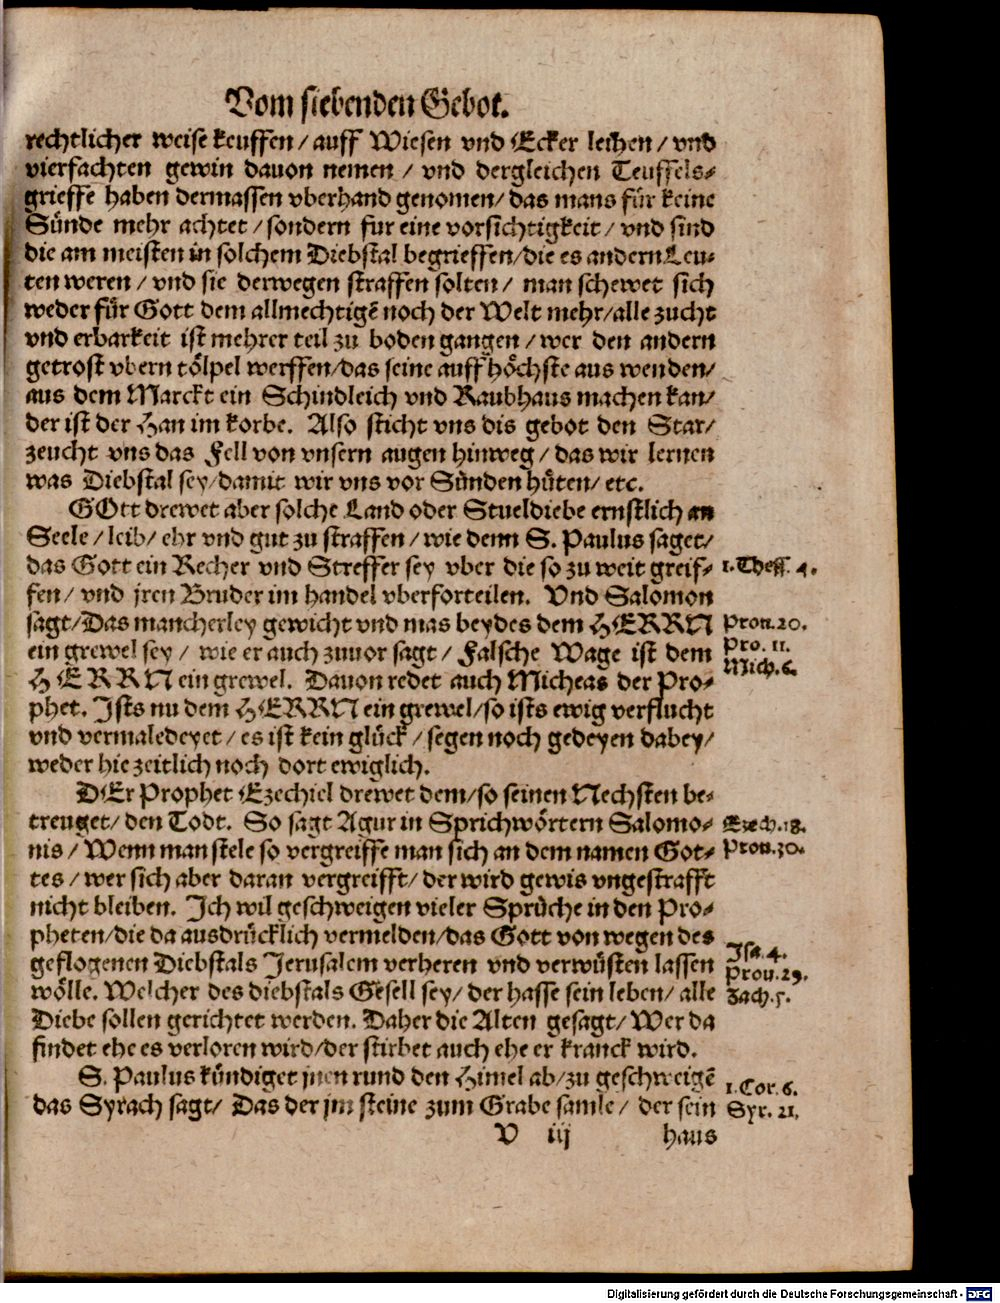 Vom siebenden Gebot.
rechtlicher weise keuffen / auff Wiesen vnd Ecker leihen / vnd
vierfachten gewin dauon nemen / vnd dergleichen Teuffels-
grieffe haben dermassen vberhand genomen / das mans für keine
Sünde mehr achtet / sondern fur eine vorsichtigkeit / vnd sind
die am meisten in solchem Diebstal begrieffen / die es andern Leu-
ten weren / vnd sie derwegen straffen solten / man schewet sich
weder für Gott dem allmechtigẽ noch der Welt mehr / alle zucht
vnd erbarkeit ist mehrer teil zu boden gangen / wer den andern
getrost vbern tölpel werffen / das seine auff höchste aus wenden /
aus dem Marckt ein Schindleich vnd Raubhaus machen kan /
der ist der Han im korbe. Also sticht vns dis gebot den Star /
zeucht vns das Fell von vnsern augen hinweg / das wir lernen
was Diebstal sey / damit wir vns vor Sünden hüten / etc.
GOtt drewet aber solche Land oder Stueldiebe ernstlich an
Seele / leib / ehr vnd gut zu straffen / wie denn S. Paulus saget /
das Gott ein Recher vnd Streffer sey vber die so zu weit greif-
fen / vnd jren Bruder im handel vberforteilen. Vnd Salomon
sagt / Das mancherley gewicht vnd mas beydes dem HERRN
ein grewel sey / wie er auch zuuor sagt / Falsche Wage ist dem
HERRN ein grewel. Dauon redet auch Micheas der Pro-
phet. Ists nu dem HERRN ein grewel / so ists ewig verflucht
vnd vermaledeyet / es ist kein glück / segen noch gedeyen dabey /
weder hie zeitlich noch dort ewiglich.
DEr Prophet Ezechiel drewet dem / so seinen Nechsten be-
treuget / den Todt. So sagt Agur in Sprichwörtern Salomo-
nis / Wenn man stele so vergreiffe man sich an dem namen Got-
tes / wer sich aber daran vergreifft / der wird gewis vngestrafft
nicht bleiben. Ich wil geschweigen vieler Sprüche in den Pro-
pheten / die da ausdrücklich vermelden / das Gott von wegen des
geflogenen Diebstals Jerusalem verheren vnd verwüsten lassen
wölle. Welcher des diebstals Gesell sey / der hasse sein leben / alle
Diebe sollen gerichtet werden. Daher die Alten gesagt / Wer da
findet ehe es verloren wird / der stirbet auch ehe er kranck wird.
S. Paulus kündiget jnen rund den Himel ab / zu geschweigẽ
das Syrach sagt / Das der jm steine zum Grabe samle / der sein
V iij haus
1. Thess. 4.
Prou. 20.
Pro. 11.
Mich. 6.
Ezech. 18.
Prou. 30.
Jsa. 4.
Prou. 29.
Zach. 5.
1. Cor. 6.
Syr. 21.
Digitalisierung gefördert durch die Deutsche Forschungsgemeinschaft - DFG